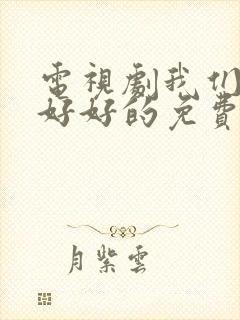 電視劇我们
好好的免費
月紫雲